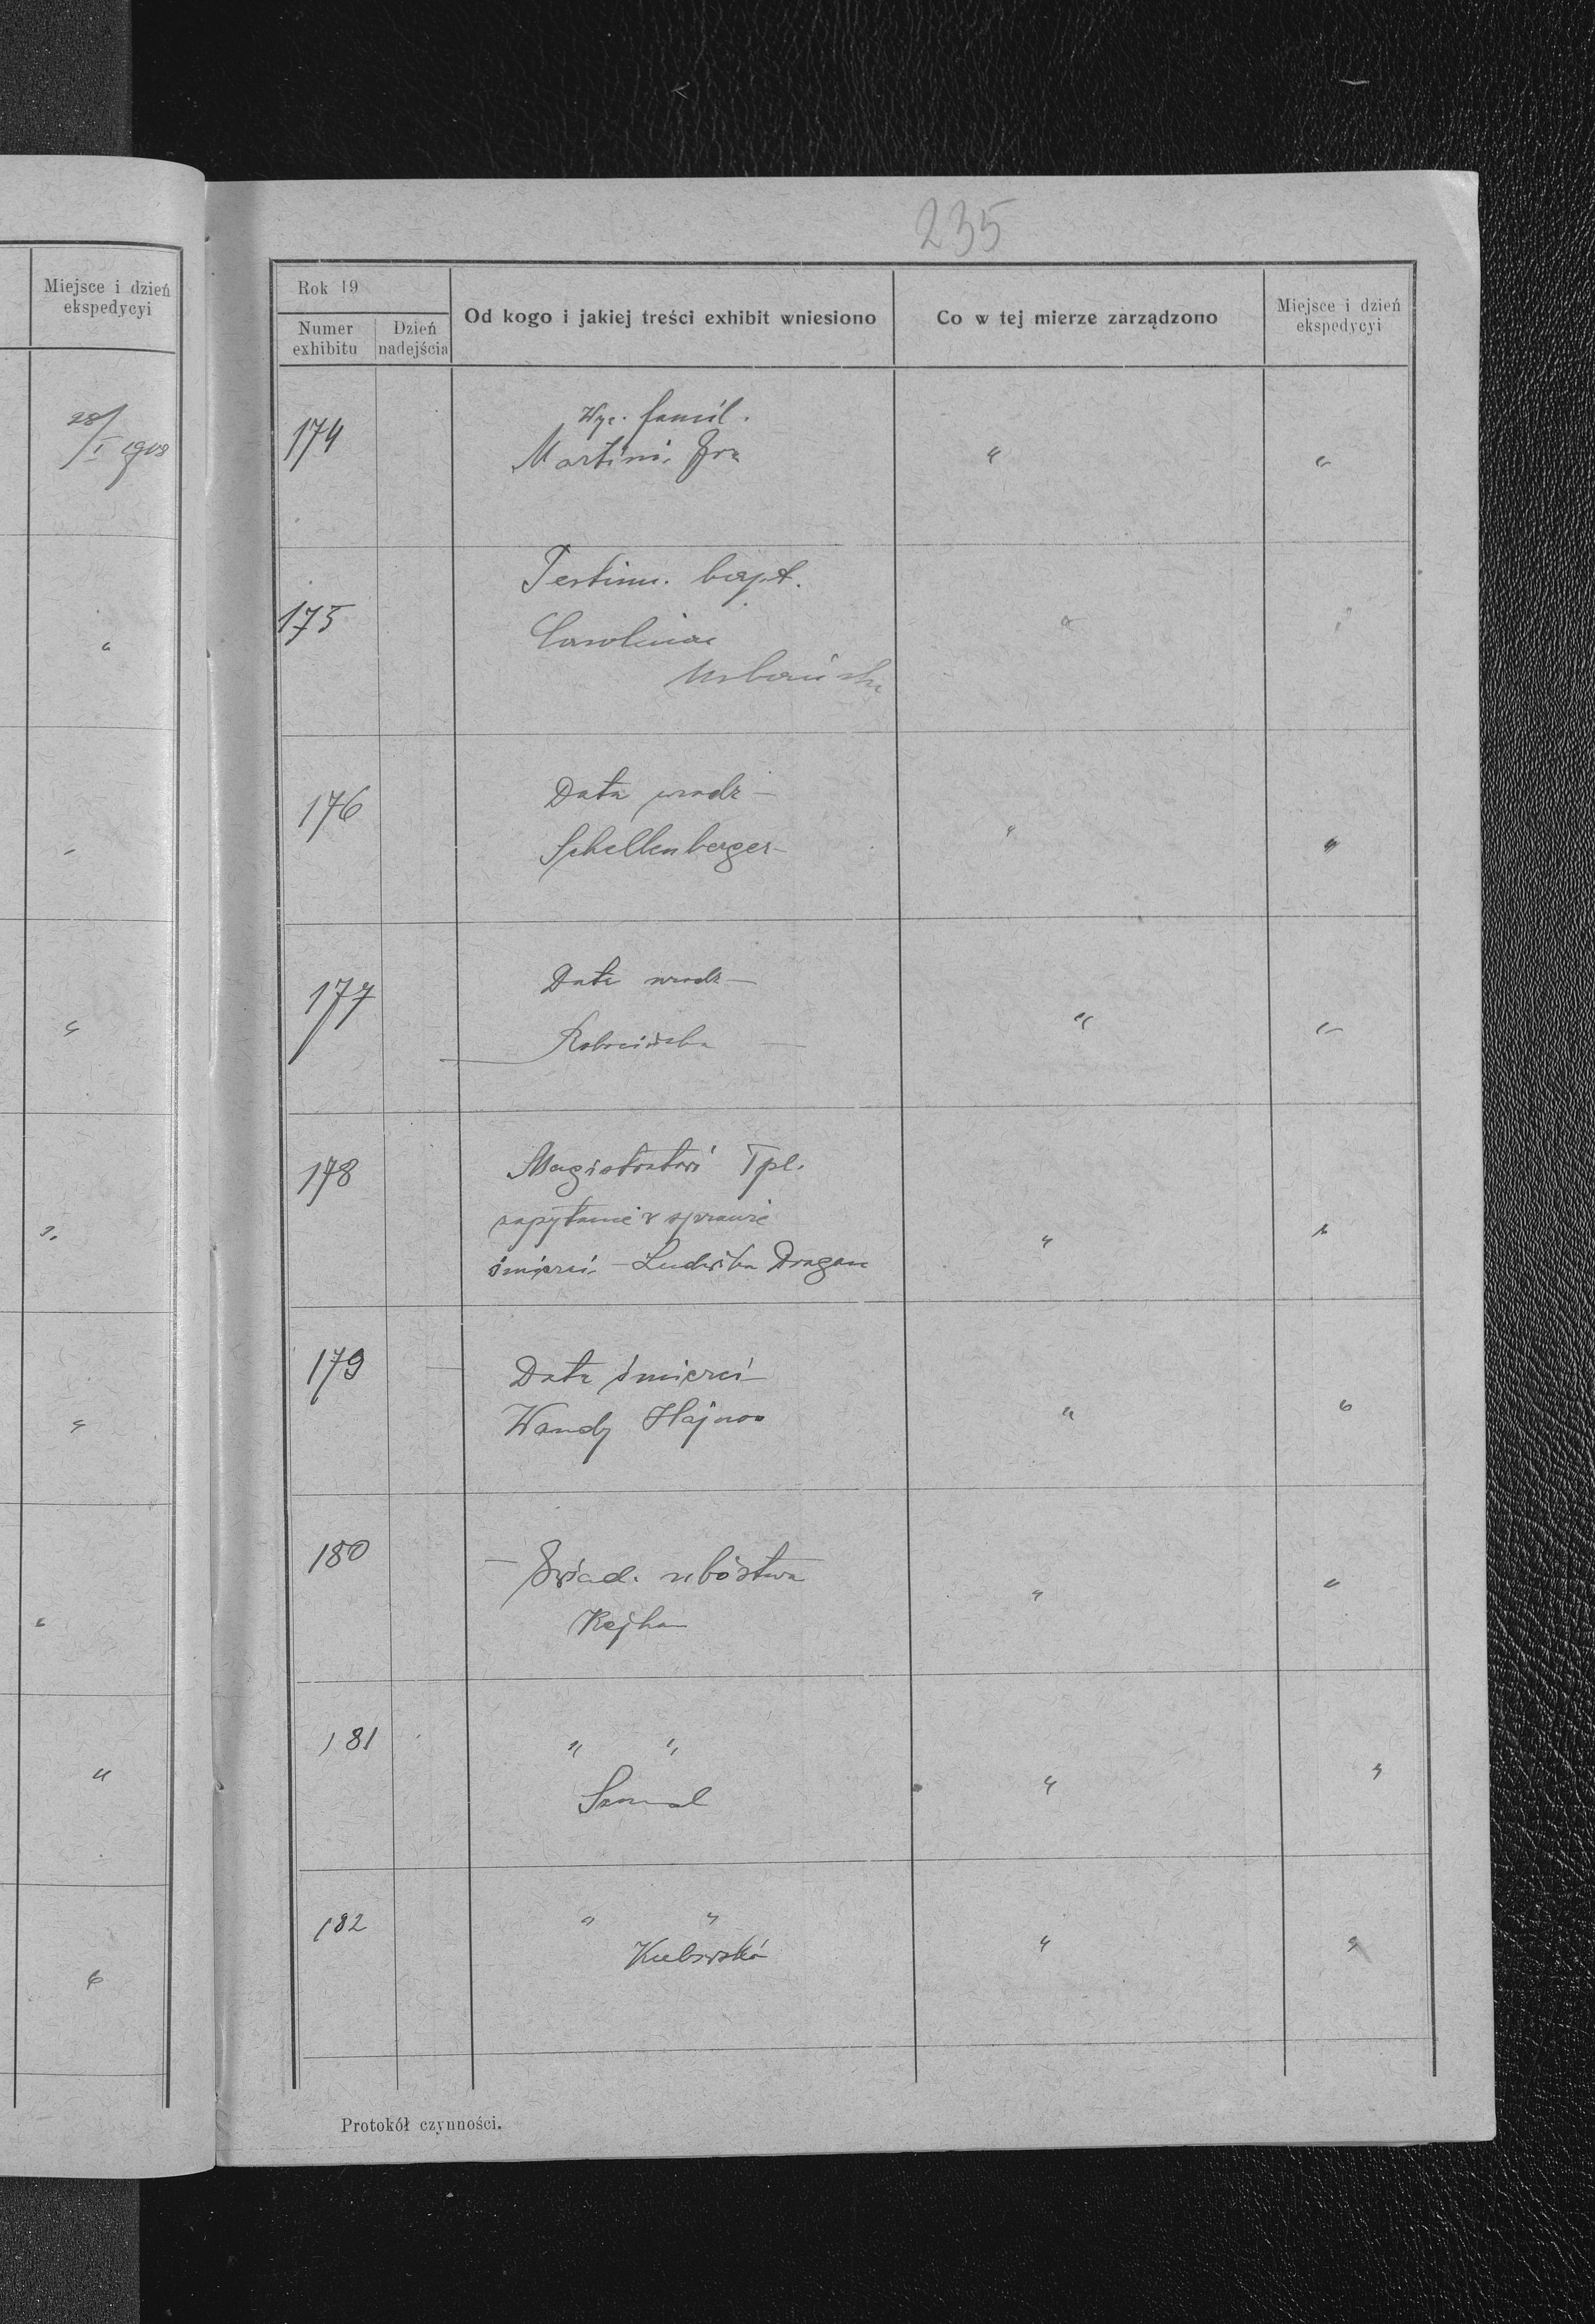 Miejsce i dzień
ekspedycyi
28/I 1918
"
"
"
"
"
"
"
"
235
Rok 19
Numer
exhibitu
Dzień
nadejścia
Od kogo i jakiej treści exhibit wniesiono
Co w tej mierze zarządzono
Miejsce i dzień
ekspedycyi
174
Wyc. famil.
Martini
"
"
175
Testim. bapt.
Carolinae
Urbańska
"
"
176
Data urodz —
Schellenberger
"
"
177
Data urodz —
"
"
178
Magistratowi Tpl.
zapytanie w sprawie
śmierci — Ludwika Dragan
"
"
179
Data śmierci
Wandy
"
"
180
— Świad. ubóstwa
Kejha
"
"
181
" "
"
"
182
" "
"
"
Protokół czynności.